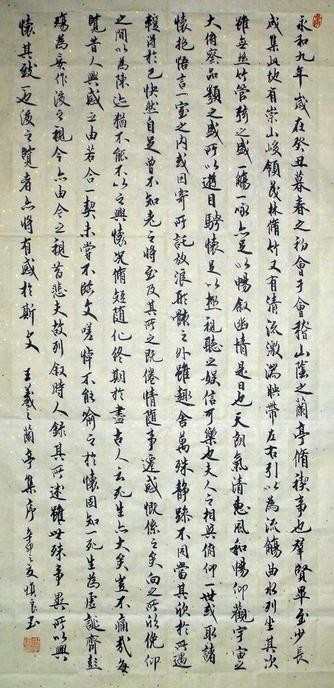 永和九年歲在癸丑暮春之初會于會稽山陰之蘭亭脩禊事也羣賢畢至少長
咸集此地有崇山峻領茂林脩竹又有清流激湍映帶左右引以為流觴曲水列坐其次
雖無絲竹管弦之盛一觴一詠亦足以暢敘幽情是日也天朗氣清惠風和暢仰觀宇宙之
大俯察品類之盛所以遊目騁懷足以極視聽之娛信可樂也夫人之相與俯仰一世或取諸
懷抱悟言一室之內或因寄所託放浪形骸之外雖趣舍萬殊靜躁不同當其欣於所遇
蹔得於己快然自足曾不知老之將至及其所之既倦情隨事遷感慨係之矣向之所欣俛仰
之間以為陳迹猶不能不以之興懷況脩短隨化終期於盡古人云死生亦大矣豈不痛哉每
覽昔人興感之由若合一契未嘗不臨文嗟悼不能喻之於懷固知一死生為虛誕齊彭
殤為妄作後之視今亦由今之視昔悲夫故列敘時人錄其所述雖世殊事異所以興
懷其致一也後之覽者亦將有感於斯文 王羲之蘭亭集序